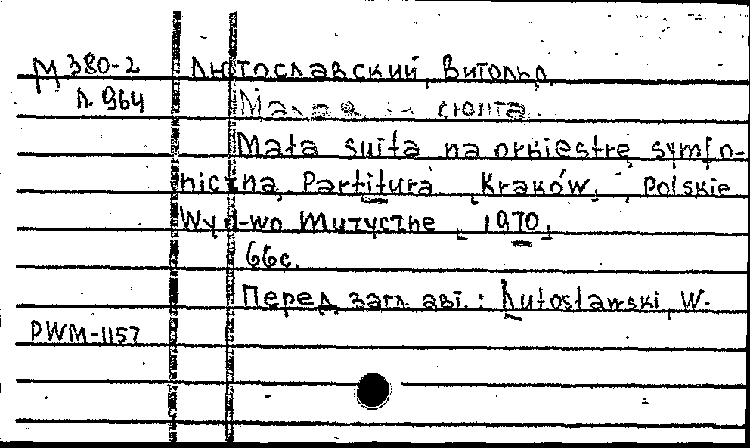 М 380-2 Лютославский, Витольд.
Л 964 Малая сюита.
Mała suita na orkiestrę symfo-
niczną. Partitura. Kraków, Polskie
Wyd-wo Muzyczne, 1970.
66с.
Перед загл. авт.: Lutosławski, W.
PWM-1157